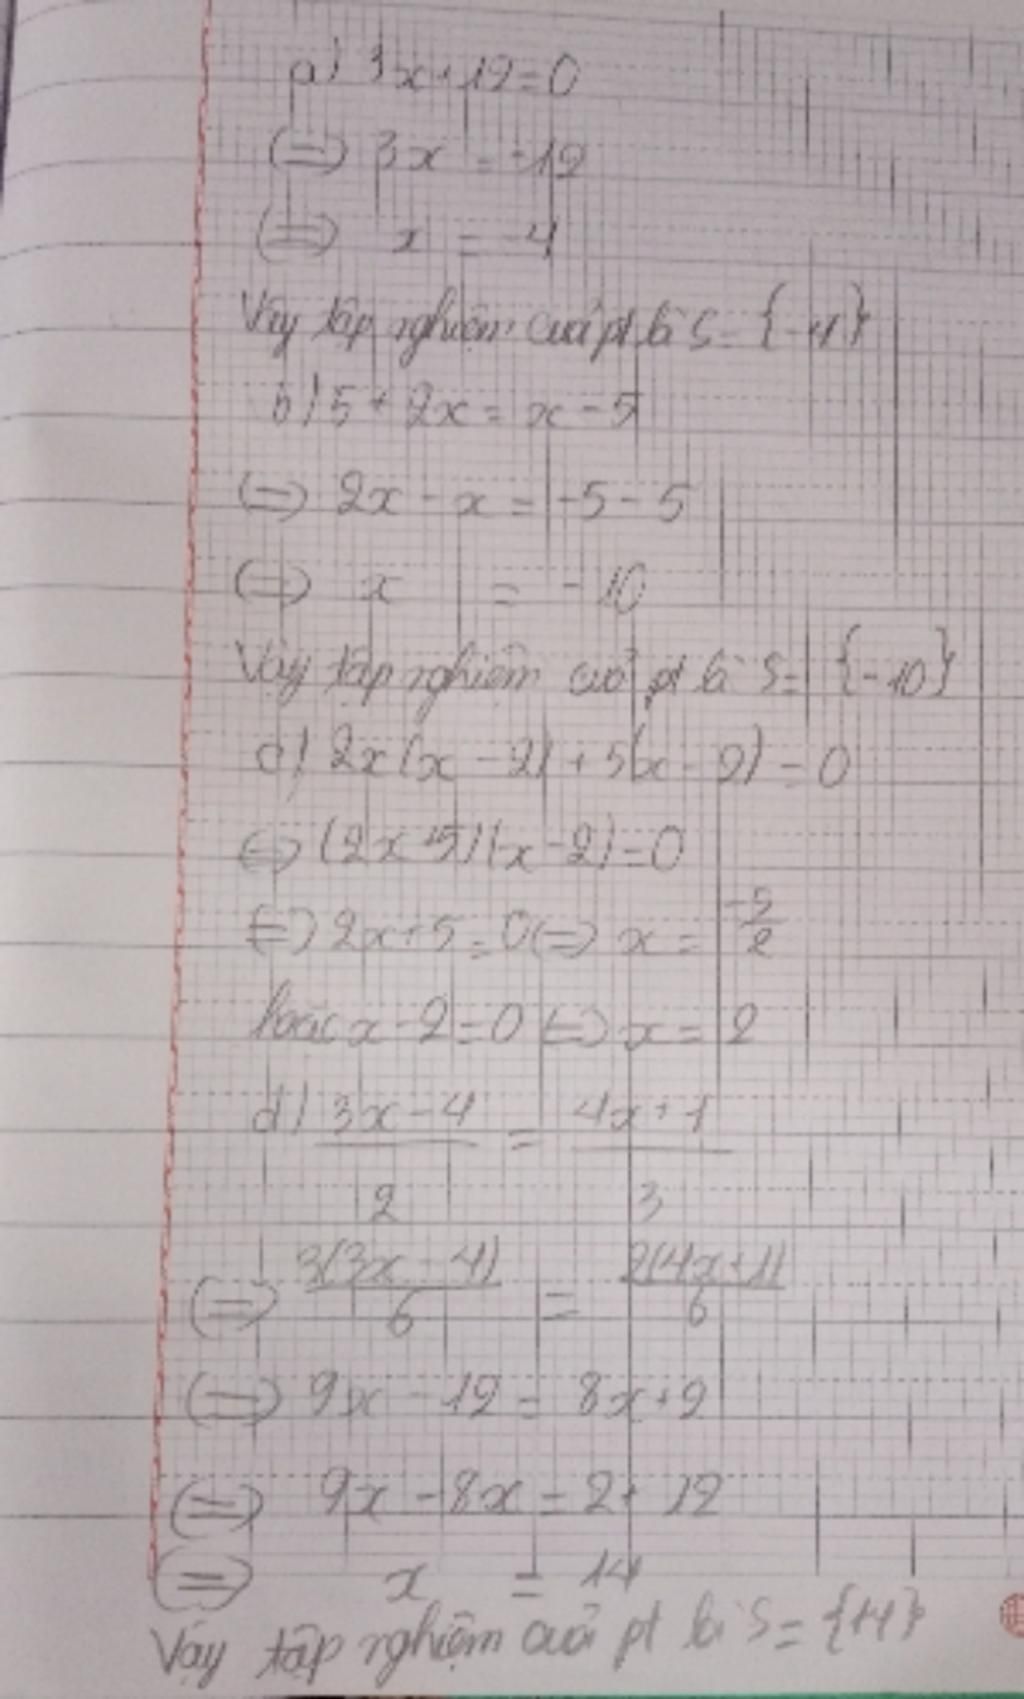 a) 3x+12=0
(=) 3x = -12
(=) x = -4
Vậy tập nghiệm của pt là S = {-4}
b) 5 + 2x = x - 5
(=) 2x - x = -5 - 5
(=) x = -10
Vậy tập nghiệm của pt là S = {-10}
c) 2x(x - 2) + 5(x - 2) = 0
(=) (2x+5)(x-2)=0
(=) 2x+5=0 (=) x = -5/2
hoặc x-2=0 (=) x = 2
d) (3x-4)/2 = (4x+1)/3
(=) 3(3x-4)/6 = 2(4x+1)/6
(=) 9x - 12 = 8x+2
(=) 9x - 8x = 2+12
(=) x = 14
Vậy tập nghiệm của pt là S = {14}